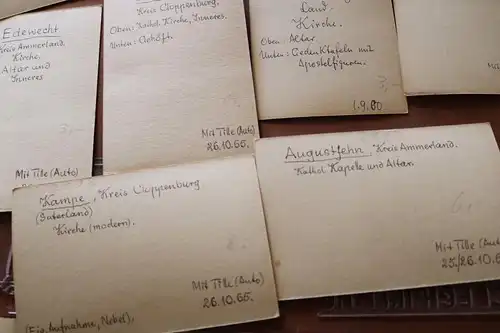 Edewecht
Kreis Ammerland.
Kirche.
Altar und
Inneres
3,-
Mit Tille (Auto)
Kreis Cloppenburg.
Oben: Kathol. Kirche, Inneres.
Unten: Gehöft.
Mit Tille (Auto)
26.10.65.
Land.
Kirche.
Oben: Altar.
Unten: Gedenktafeln mit
Apostelfiguren.
1.9.60
Mit
Kampe, Kreis Cloppenburg
(Saterland)
Kirche (modern).
Mit Tille (Auto)
26.10.65.
(Eig. Aufnahme, Nebel).
Augustfehn, Kreis Ammerland.
Kathol. Kapelle und Altar.
6,-
Mit Tille (Auto)
25./26.10.65.